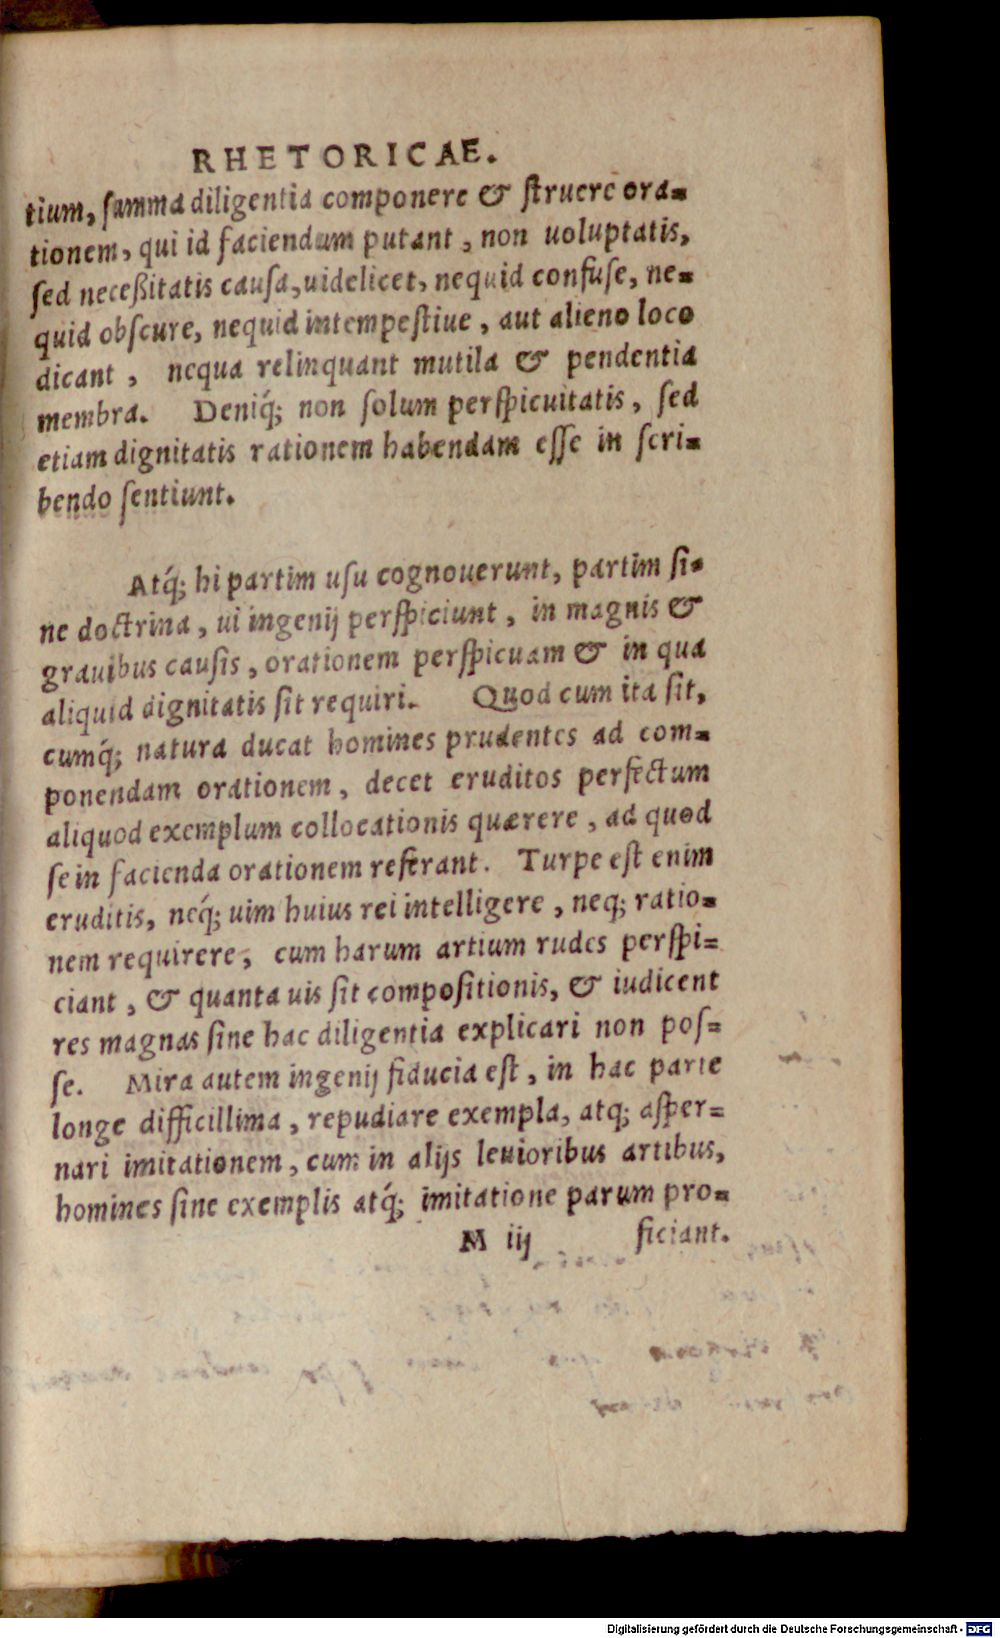 RHETORICAE.
tium, summa diligentia componere & struere ora=
tionem, qui id faciendum putant, non uoluptatis,
sed neceßitatis causa, uidelicet, nequid confuse, ne=
quid obscure, nequid intempestiue, aut alieno loco
dicant, nequa relinquant mutila & pendentia
membra. Deniq́; non solum perspicuitatis, sed
etiam dignitatis rationem habendam esse in scri=
bendo sentiunt.
Atq́; hi partim usu cognouerunt, partim si=
ne doctrina, ui ingenij perspiciunt, in magnis &
grauibus causis, orationem perspicuam & in qua
aliquid dignitatis sit requiri. Quod cum ita sit,
cumq́; natura ducat homines prudentes ad com=
ponendam orationem, decet eruditos perfectum
aliquod exemplum collocationis quærere, ad quod
se in facienda orationem referant. Turpe est enim
eruditis, neq́; uim huius rei intelligere, neq; ratio=
nem requirere, cum harum artium rudes perspi=
ciant, & quanta uis sit compositionis, & iudicent
res magnas sine hac diligentia explicari non pos=
se. Mira autem ingenij fiducia est, in hac parte
longe difficillima, repudiare exempla, atq; asper=
nari imitationem, cum in alijs leuioribus artibus,
homines sine exemplis atq́; imitatione parum pro=
M iij ficiant.
Digitalisierung gefördert durch die Deutsche Forschungsgemeinschaft - DFG